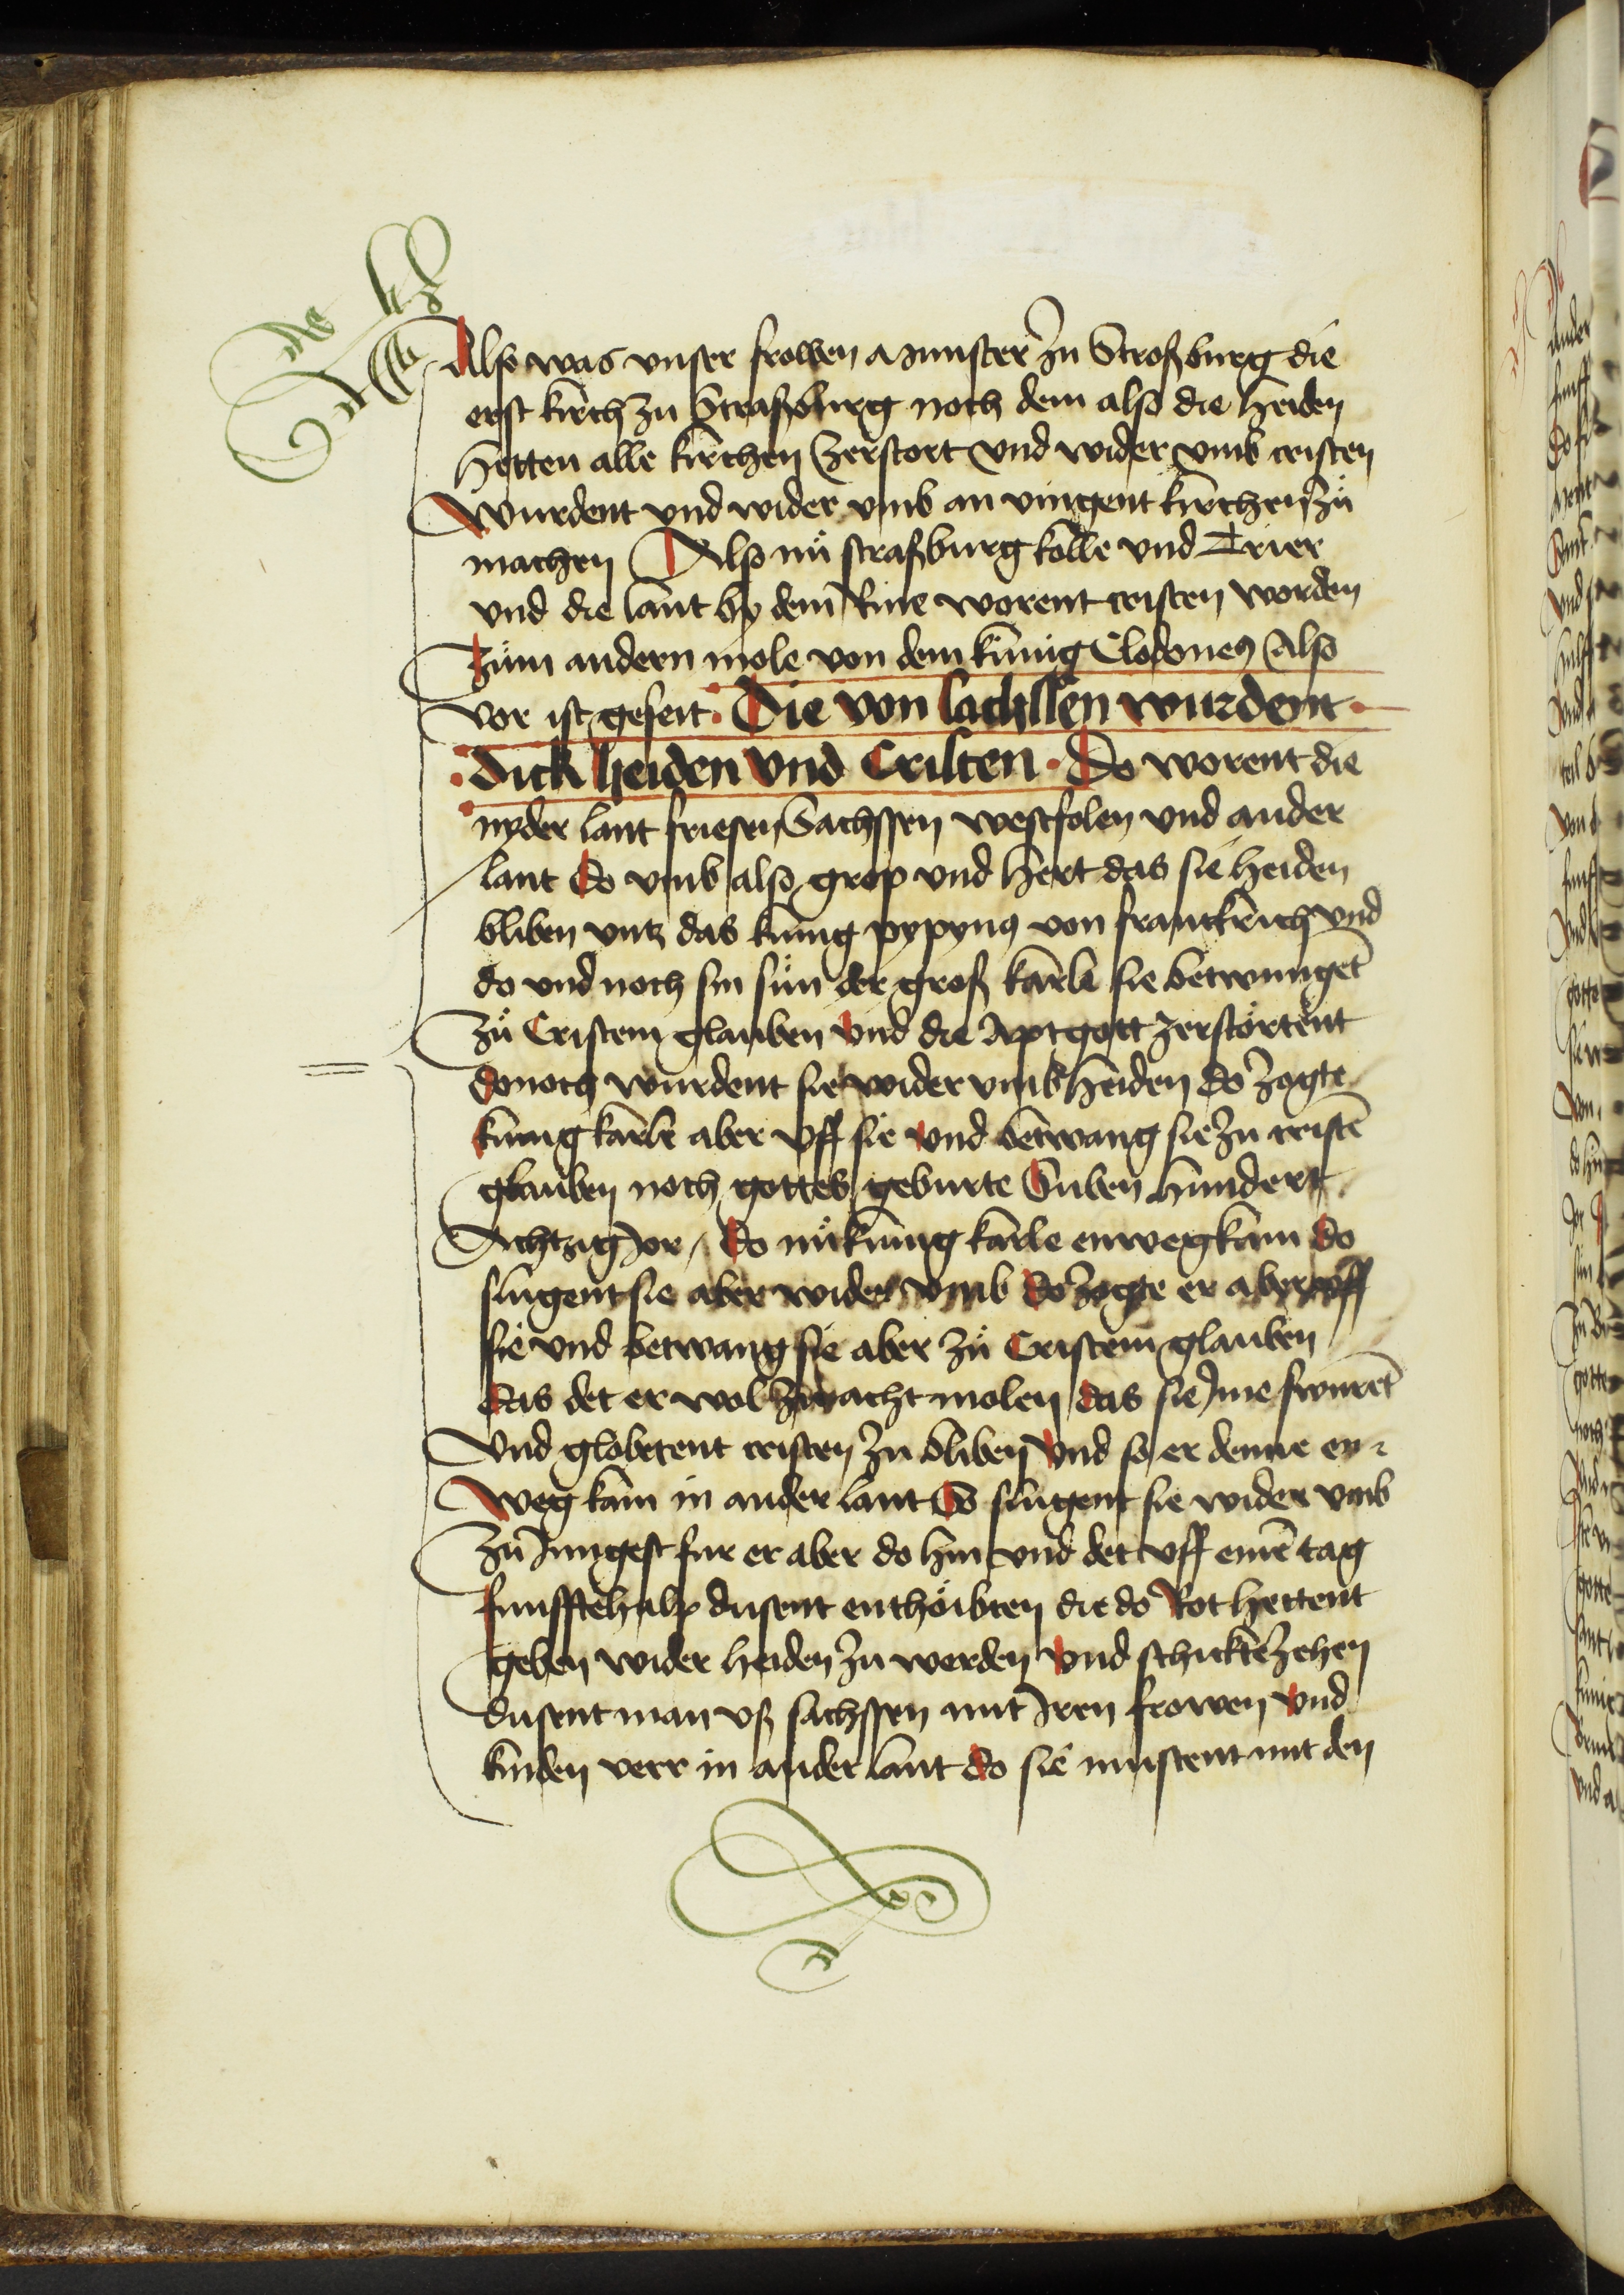 Also was vnser frowen munster zu Stroßburg die
erst kirch zu Straßburg noch dem also die heiden
hetten alle kirchen zerstort vnd wider vmb cristen
Wurdent vnd wider vmb an vingent kirchen zů
machen Also nů straßburg kolle vnd Trier
vnd die lant by dem Rine worent cristen worden
Zům andern mole von dem kunig Clodoueus Also
vor ist geseit · Die von sachssen wurdent ·
· dick heiden vnd Cristen · Do worent die
nyder lant friesen Sachssen westfolen vnd ander
lant do vmb also grop vnd hert das sie heiden
bliben vntz das kunig pypynus von franckrich vnd
do vnd noch sin sůn der groß karle sie betwungēt
Zů Cristem glauben vnd die Aptgott zerstörtent
donoch wurdent sie wider vmb heiden do zogte
kunig karle aber vff sie vnd betwang sie zu cristē
glauben noch gottes geburte Suben hundert
Achtzig Jor / do nů kunig karle enweg kam do
slugent sie aber wider vmb do zogte er aber vff
sie vnd betwang sie aber zů Cristem glauben
das det er wol zu acht molen das sie Jme swurēt
Vnd globetent cristen zu bliben vnd so er denne en
Weg kam in ander lant So slugent sie wider vmb
Zu Jungest fur er aber do hin vnd det vff einē tag
funfftehalp dusent enthöibten die do Rot hettent
geben wider heiden zu werden vnd schickte zehen
dusent man vß sachssen mit Jren frowen vnd
kinden verr in ander lant do sie mustent mit den